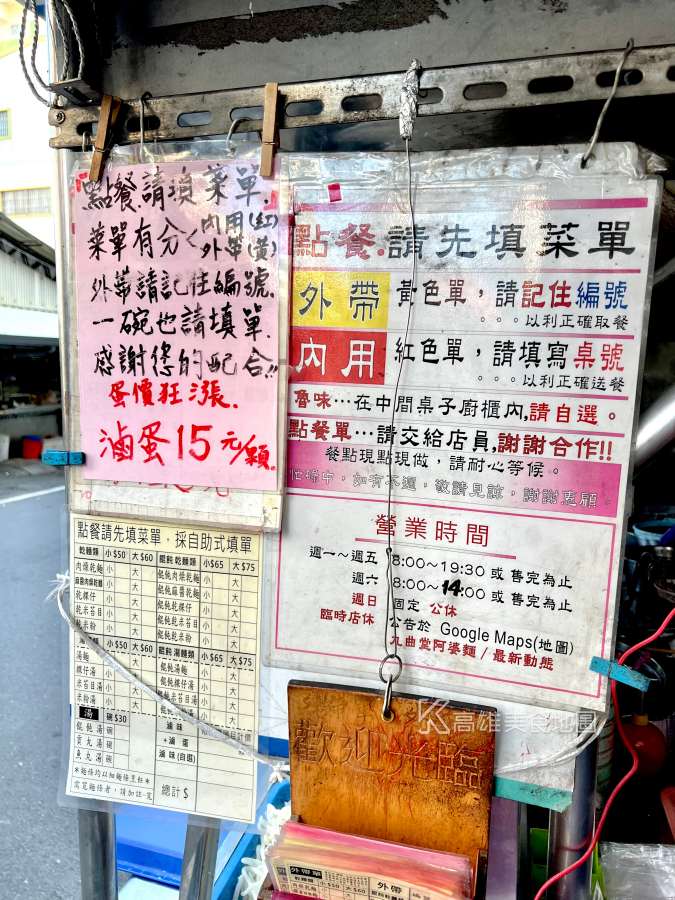 點餐.請填菜單.
菜單有分<內用(紅)
外帶(黃)
外帶請記住編號.
一碗也請填單.
感謝您的配合!!
蛋價狂漲.
滷蛋15元/顆.
點餐.請先填菜單
外帶 黃色單，請記住編號
。。。以利正確取餐
內用 紅色單，請填寫桌號
。。。以利正確送餐
魯味…在中間桌子廚櫃內,請自選。
點餐單…請交給店員,謝謝合作!!
餐點現點現做，請耐心等候。
忙碌中，如有不週，敬請見諒，謝謝惠顧。
營業時間
週一~週五 8:00~19:30 或 售完為止
週六 8:00~14:00 或 售完為止
週日 固定 公休
臨時店休 公告於 Google Maps(地圖)
九曲堂阿婆麵/最新動態
點餐請先填菜單，採自助式填單
乾麵類 小$50 大$60 餛飩乾麵類 小$65 大$75
肉燥乾麵 小 大 餛飩肉燥乾麵 小 大
麻醬肉燥乾麵 小 大 餛飩麻醬乾麵 小 大
乾粿仔 小 大 餛飩乾粿仔 小 大
乾米苔目 小 大 餛飩乾米苔目 小 大
乾米粉 小 大 餛飩乾米粉 小 大
小$50 大$60 餛飩湯麵類 小$65 大$75
湯麵 小 大 餛飩湯麵 小 大
粿仔湯 小 大 餛飩粿仔湯 小 大
米苔目湯 小 大 餛飩米苔目湯 小 大
米粉湯 小 大 餛飩米粉湯 小 大
湯 碗$30 滷味
餛飩湯 碗 +滷蛋
貢丸湯 碗 滷味(自選)
魚丸湯 碗
總計$
歡迎光臨
高雄美食地圖
外帶單 小$50 大$60
外帶